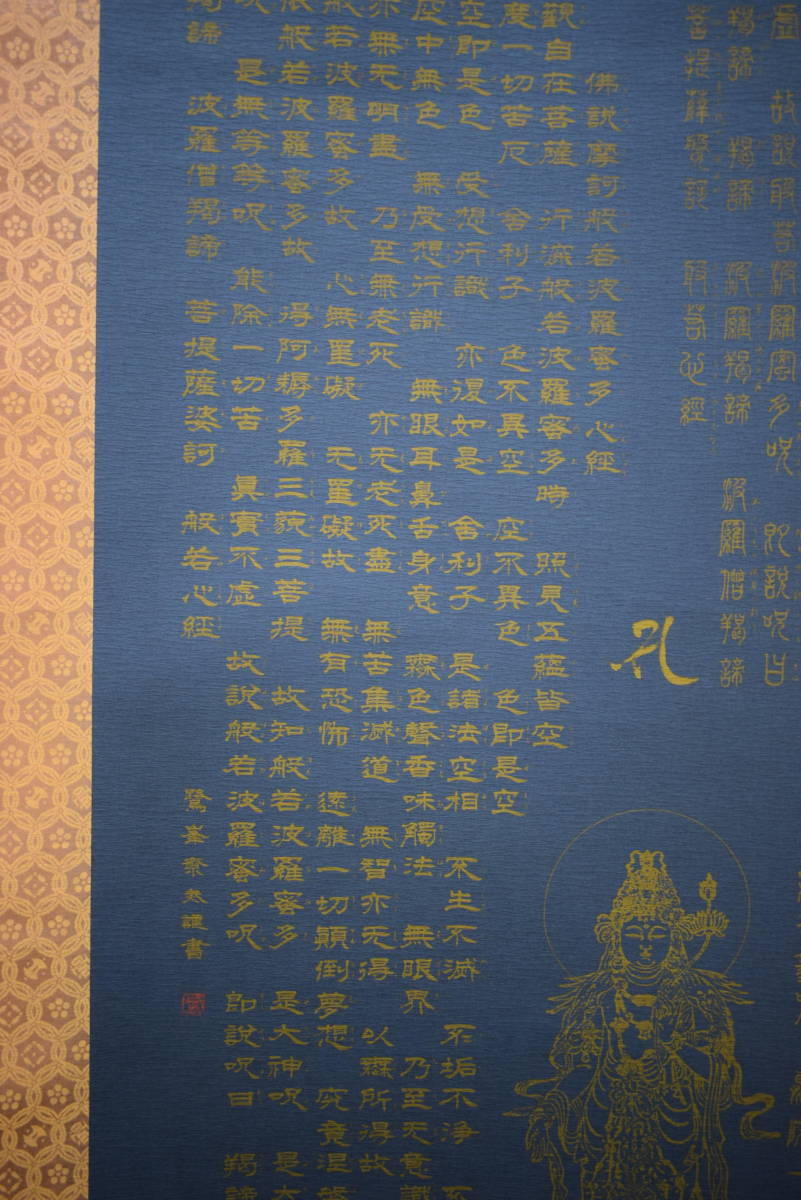 虛 故說般若波羅蜜多呪 即說呪曰
羯諦 羯諦 波羅羯諦 波羅僧羯諦
菩提薩婆訶 般若心經
孔
佛說摩訶般若波羅蜜多心經
觀自在菩薩 行深般若波羅蜜多時 照見五蘊皆空
度一切苦厄 舍利子 色不異空 空不異色 色即是空
空即是色 受想行識 亦復如是 舍利子 是諸法空相 不生不滅 不垢不淨 不
空中無色 無受想行識 無眼耳鼻舌身意 無色聲香味觸法 無眼界 乃至无意識
亦無无明盡 乃至無老死 亦无老死盡 無苦集滅道 無智亦无得 以無所得故
般若波羅蜜多故 心無罣礙 无罣礙故 無有恐怖 遠離一切顛倒夢想 究竟涅槃
依般若波羅蜜多故 得阿耨多羅三藐三菩提 故知般若波羅蜜多 是大神呪 是大
是無等等呪 能除一切苦 眞實不虛 故說般若波羅蜜多呪 即說呪曰 羯諦
羯諦 波羅僧羯諦 菩提薩婆訶 般若心經
鷲峯 謹書